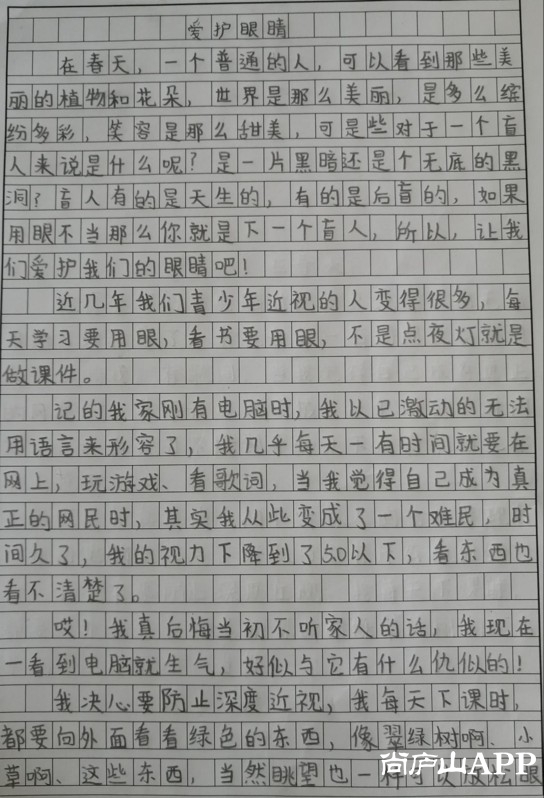 爱护眼睛
在春天，一个普通的人，可以看到那些美
丽的植物和花朵，世界是那么美丽，是多么缤
纷多彩，笑容是那么甜美，可是些对于一个盲
人来说是什么呢？是一片黑暗还是个无底的黑
洞？盲人有的是天生的，有的是后盲的，如果
用眼不当那么你就是下一个盲人，所以，让我
们爱护我们的眼睛吧！
近几年我们青少年近视的人变得很多，每
天学习要用眼，看书要用眼，不是点夜灯就是
做课件。
记的我家刚有电脑时，我以已激动的无法
用语言来形容了，我几乎每天一有时间就要在
网上，玩游戏、看歌词，当我觉得自己成为真
正的网民时，其实我从此变成了一个难民，时
间久了，我的视力下降到了5.0以下，看东西也
看不清楚了。
哎！我真后悔当初不听家人的话，我现在
一看到电脑就生气，好似与它有什么仇似的！
我决心要防止深度近视，我每天下课时，
都要向外面看看绿色的东西，像翠绿树啊、小
草啊、这些东西，当然眺望也一种可以放松眼
尚庐山APP